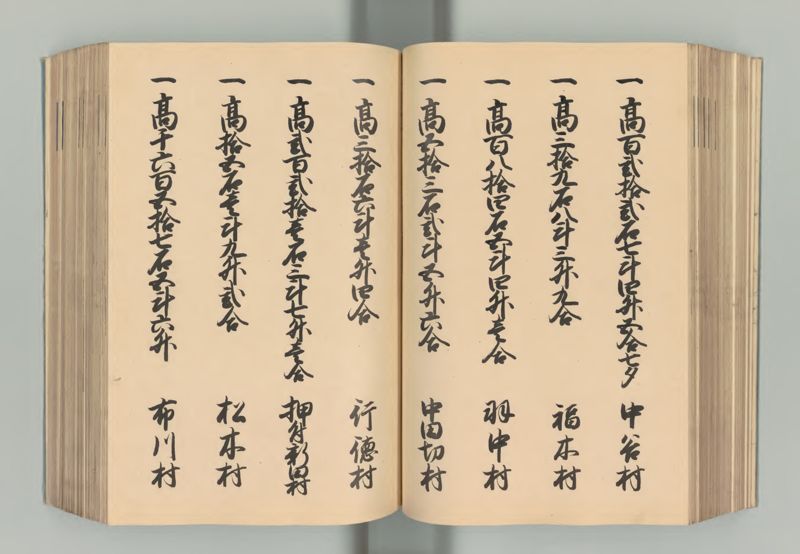 一 高百弐拾弐石七斗四升五合七夕 中谷村
一 高三拾九石八斗三升九合 福木村
一 高百八拾四石五斗四升壱合 羽中村
一 高五拾三石弐斗五升六合 中田切村
一 高三拾石六斗壱升四合 行徳村
一 高弐百弐拾壱石三斗七升壱合 押付新田村
一 高拾五石壱斗九升弐合 松木村
一 高千六百五拾七石五斗六升 布川村